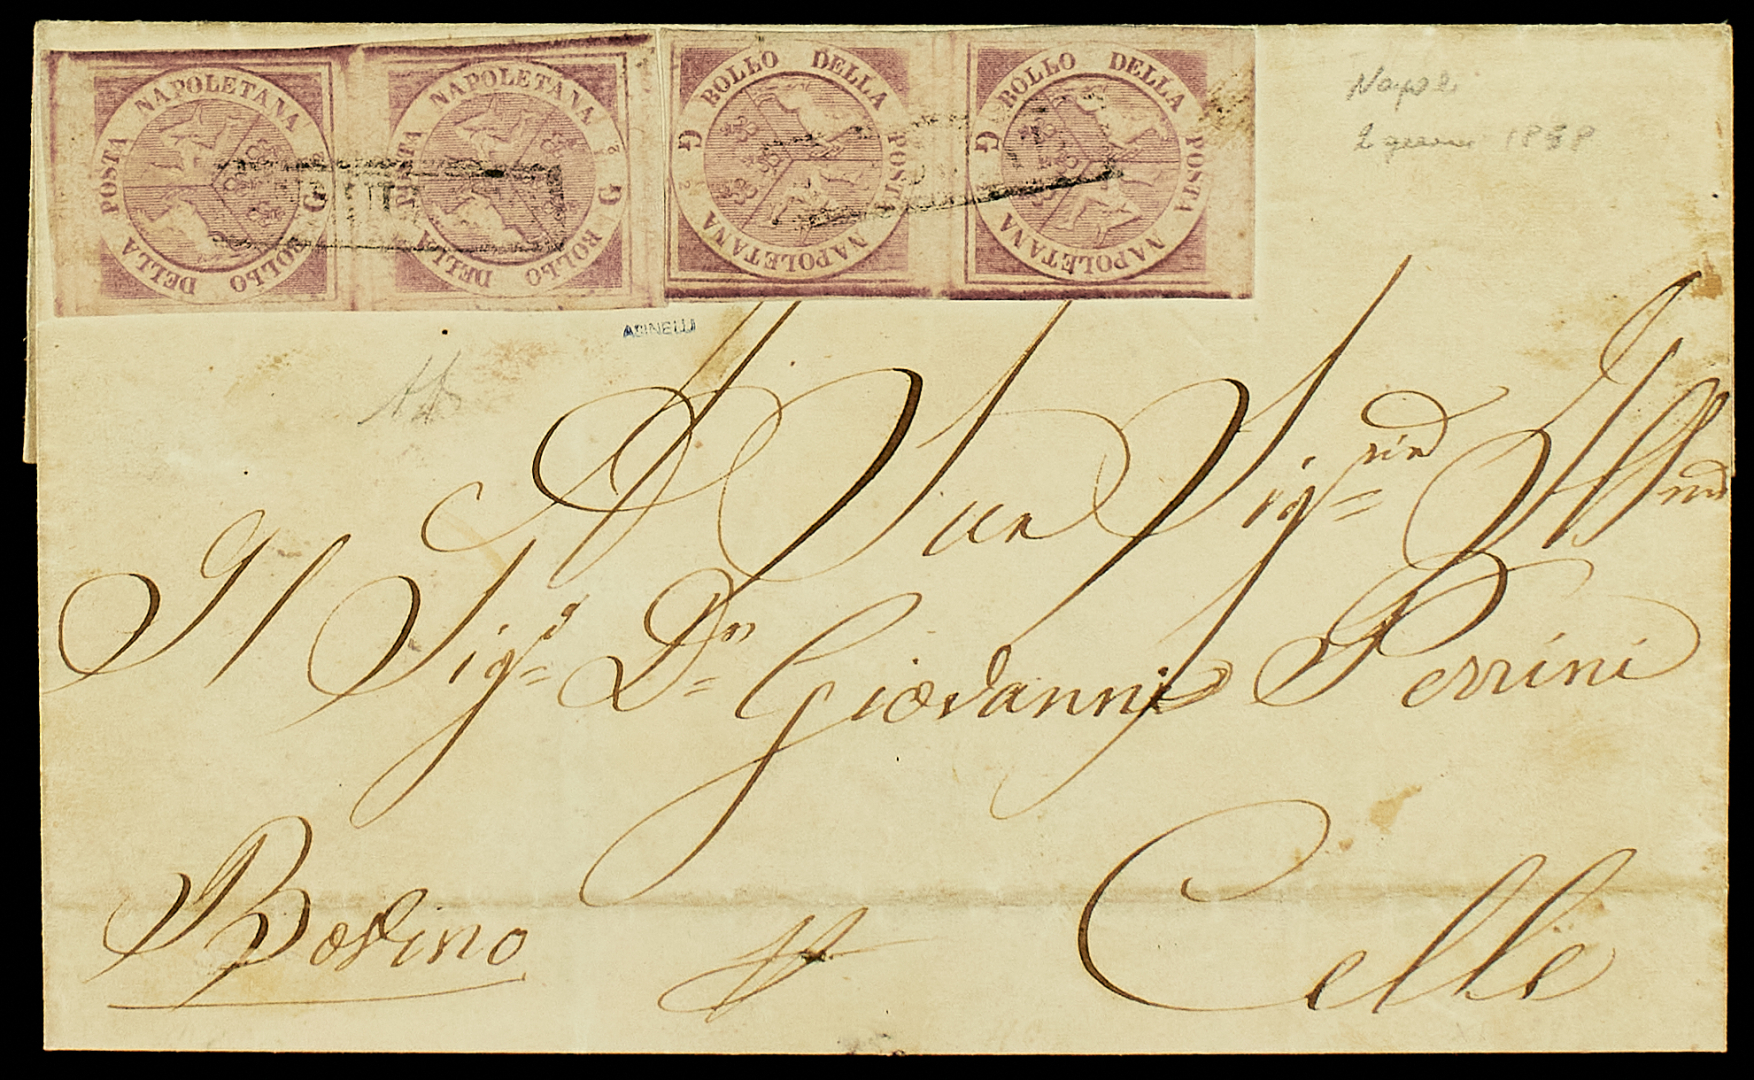 POSTA NAPOLETANA G BOLLO DELLA
POSTA NAPOLETANA ½ G BOLLO DELLA
G BOLLO DELLA POSTA NAPOLETANA ½
G BOLLO DELLA POSTA NAPOLETANA
Napoli
1858
ASINELLI
A Sua Sig.ria Ill.ma
Il Sig.r D.n Giovanni Perrini
Bovino
Celle